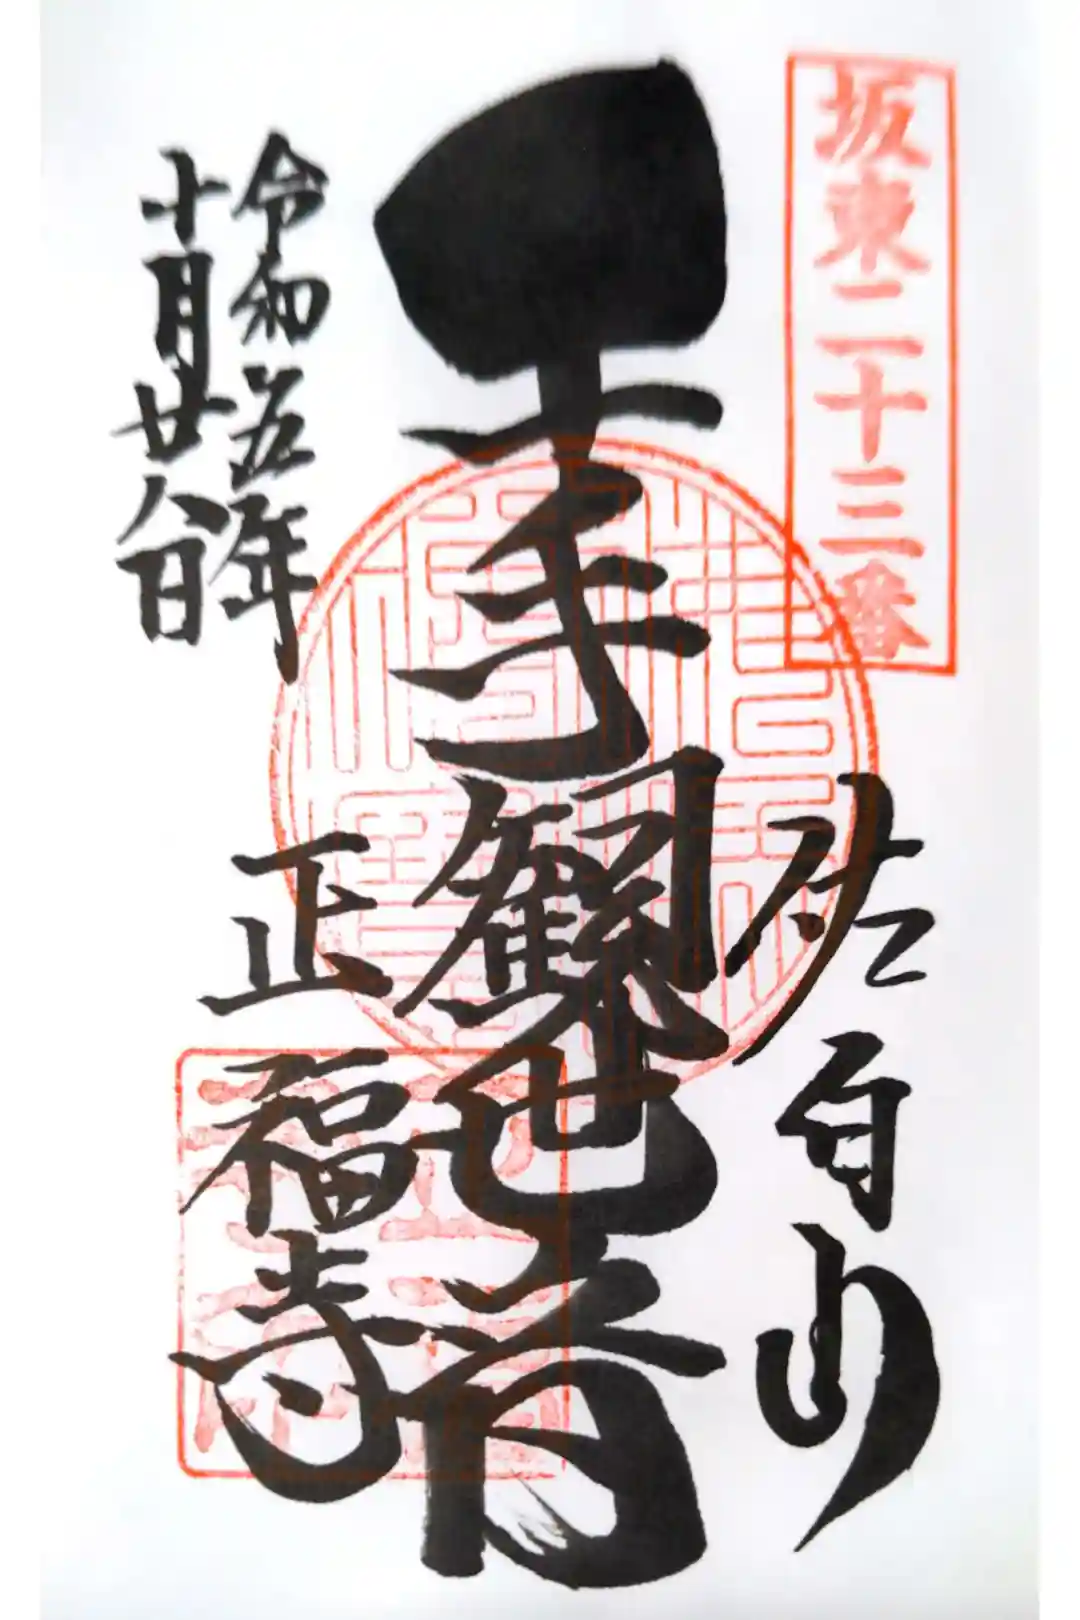 坂東二十三番
佐白山
千手観世音
令和五年
十月廿八日
正福寺